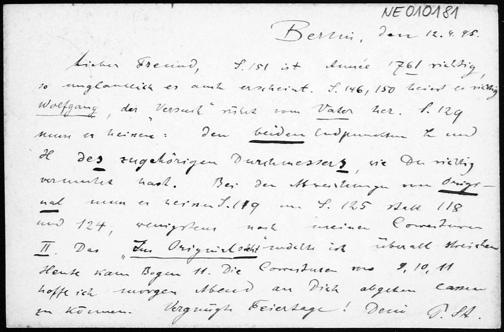 NE010181
Berlin, den 12.4.95.
Lieber Freund, S. 151 ist Année 1761 richtig,
so unglaublich es auch erscheint. S. 146, 150 heisst es richtig
Wolfgang, der "Versuch" rührt vom Vater her. S. 129
muss es heissen: den beiden Endpunkten L und
H des zugehörigen Durchmessers, wie Du richtig
vermutet hast. Bei den Abweichungen vom Origi-
nal muss es heissen S. 119 S. 125 statt 118
und 124, wenigstens nach meinen Correcturen
II. Das "Im Original steht" möchte ich überall streichen
Heute kam Bogen 11. Die Correcturen von 9, 10, 11
hoffe ich morgen Abend an Dich abgehen lassen
zu können. Vergnügte Feiertage! Dein P. St.